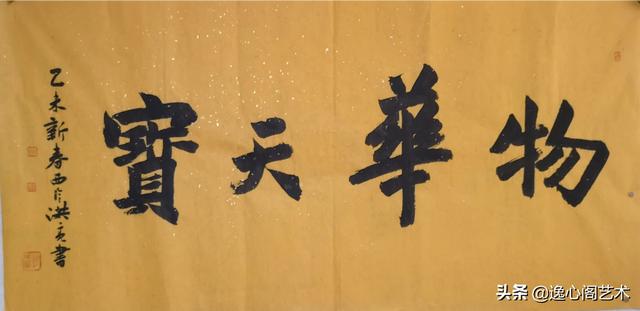 物華天寶
乙未新春西洪亮書
头条 @逸心阁艺术